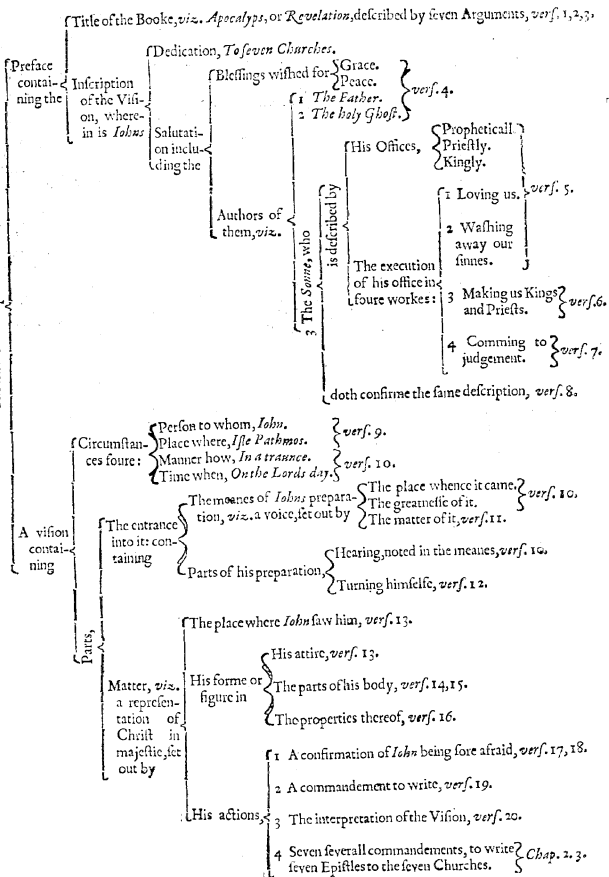 Title of the Booke, viz. Apocalyps, or Revelation, deſcribed by ſeven Arguments, verſ. 1, 2, 3.
Preface
contai-
ning the
Inſcription
of the Viſi-
on, where-
in is Iohns
Dedication, To ſeven Churches.
Salutati-
on inclu-
ding the
Bleſſings wiſhed for
Grace.
Peace.
verſ. 4.
Authors of
them, viz.
1 The Father.
2 The holy Ghoſt.
3 The Sonne, who
is deſcribed by
His Offices,
Propheticall.
Prieſtly.
Kingly.
The execution
of his office in
foure workes:
1 Loving us.
2 Waſhing
away our
ſinnes.
verſ. 5.
3 Making us Kings
and Prieſts.
verſ. 6.
4 Comming to
judgement.
verſ. 7.
doth confirme the ſame deſcription, verſ. 8.
A viſion
contai-
ning
Circumſtan-
ces foure:
Perſon to whom, Iohn.
Place where, Iſle Pathmos.
verſ. 9.
Manner how, In a traunce.
Time when, On the Lords day.
verſ. 10.
Parts,
The entrance
into it: con-
taining
The meanes of Iohns prepara-
tion, viz. a voice, ſet out by
The place whence it came.
The greatneſſe of it.
verſ. 10.
The matter of it, verſ. 11.
Parts of his preparation,
Hearing, noted in the meanes, verſ. 10.
Turning himſelfe, verſ. 12.
Matter, viz.
a repreſen-
tation of
Chriſt in
majeſtie, ſet
out by
The place where Iohn ſaw him, verſ. 13.
His forme or
figure in
His attire, verſ. 13.
The parts of his body, verſ. 14, 15.
The properties thereof, verſ. 16.
His actions,
1 A confirmation of Iohn being ſore afraid, verſ. 17, 18.
2 A commandement to write, verſ. 19.
3 The interpretation of the Viſion, verſ. 20.
4 Seven ſeverall commandements, to write
ſeven Epiſtles to the ſeven Churches.
Chap. 2. 3.